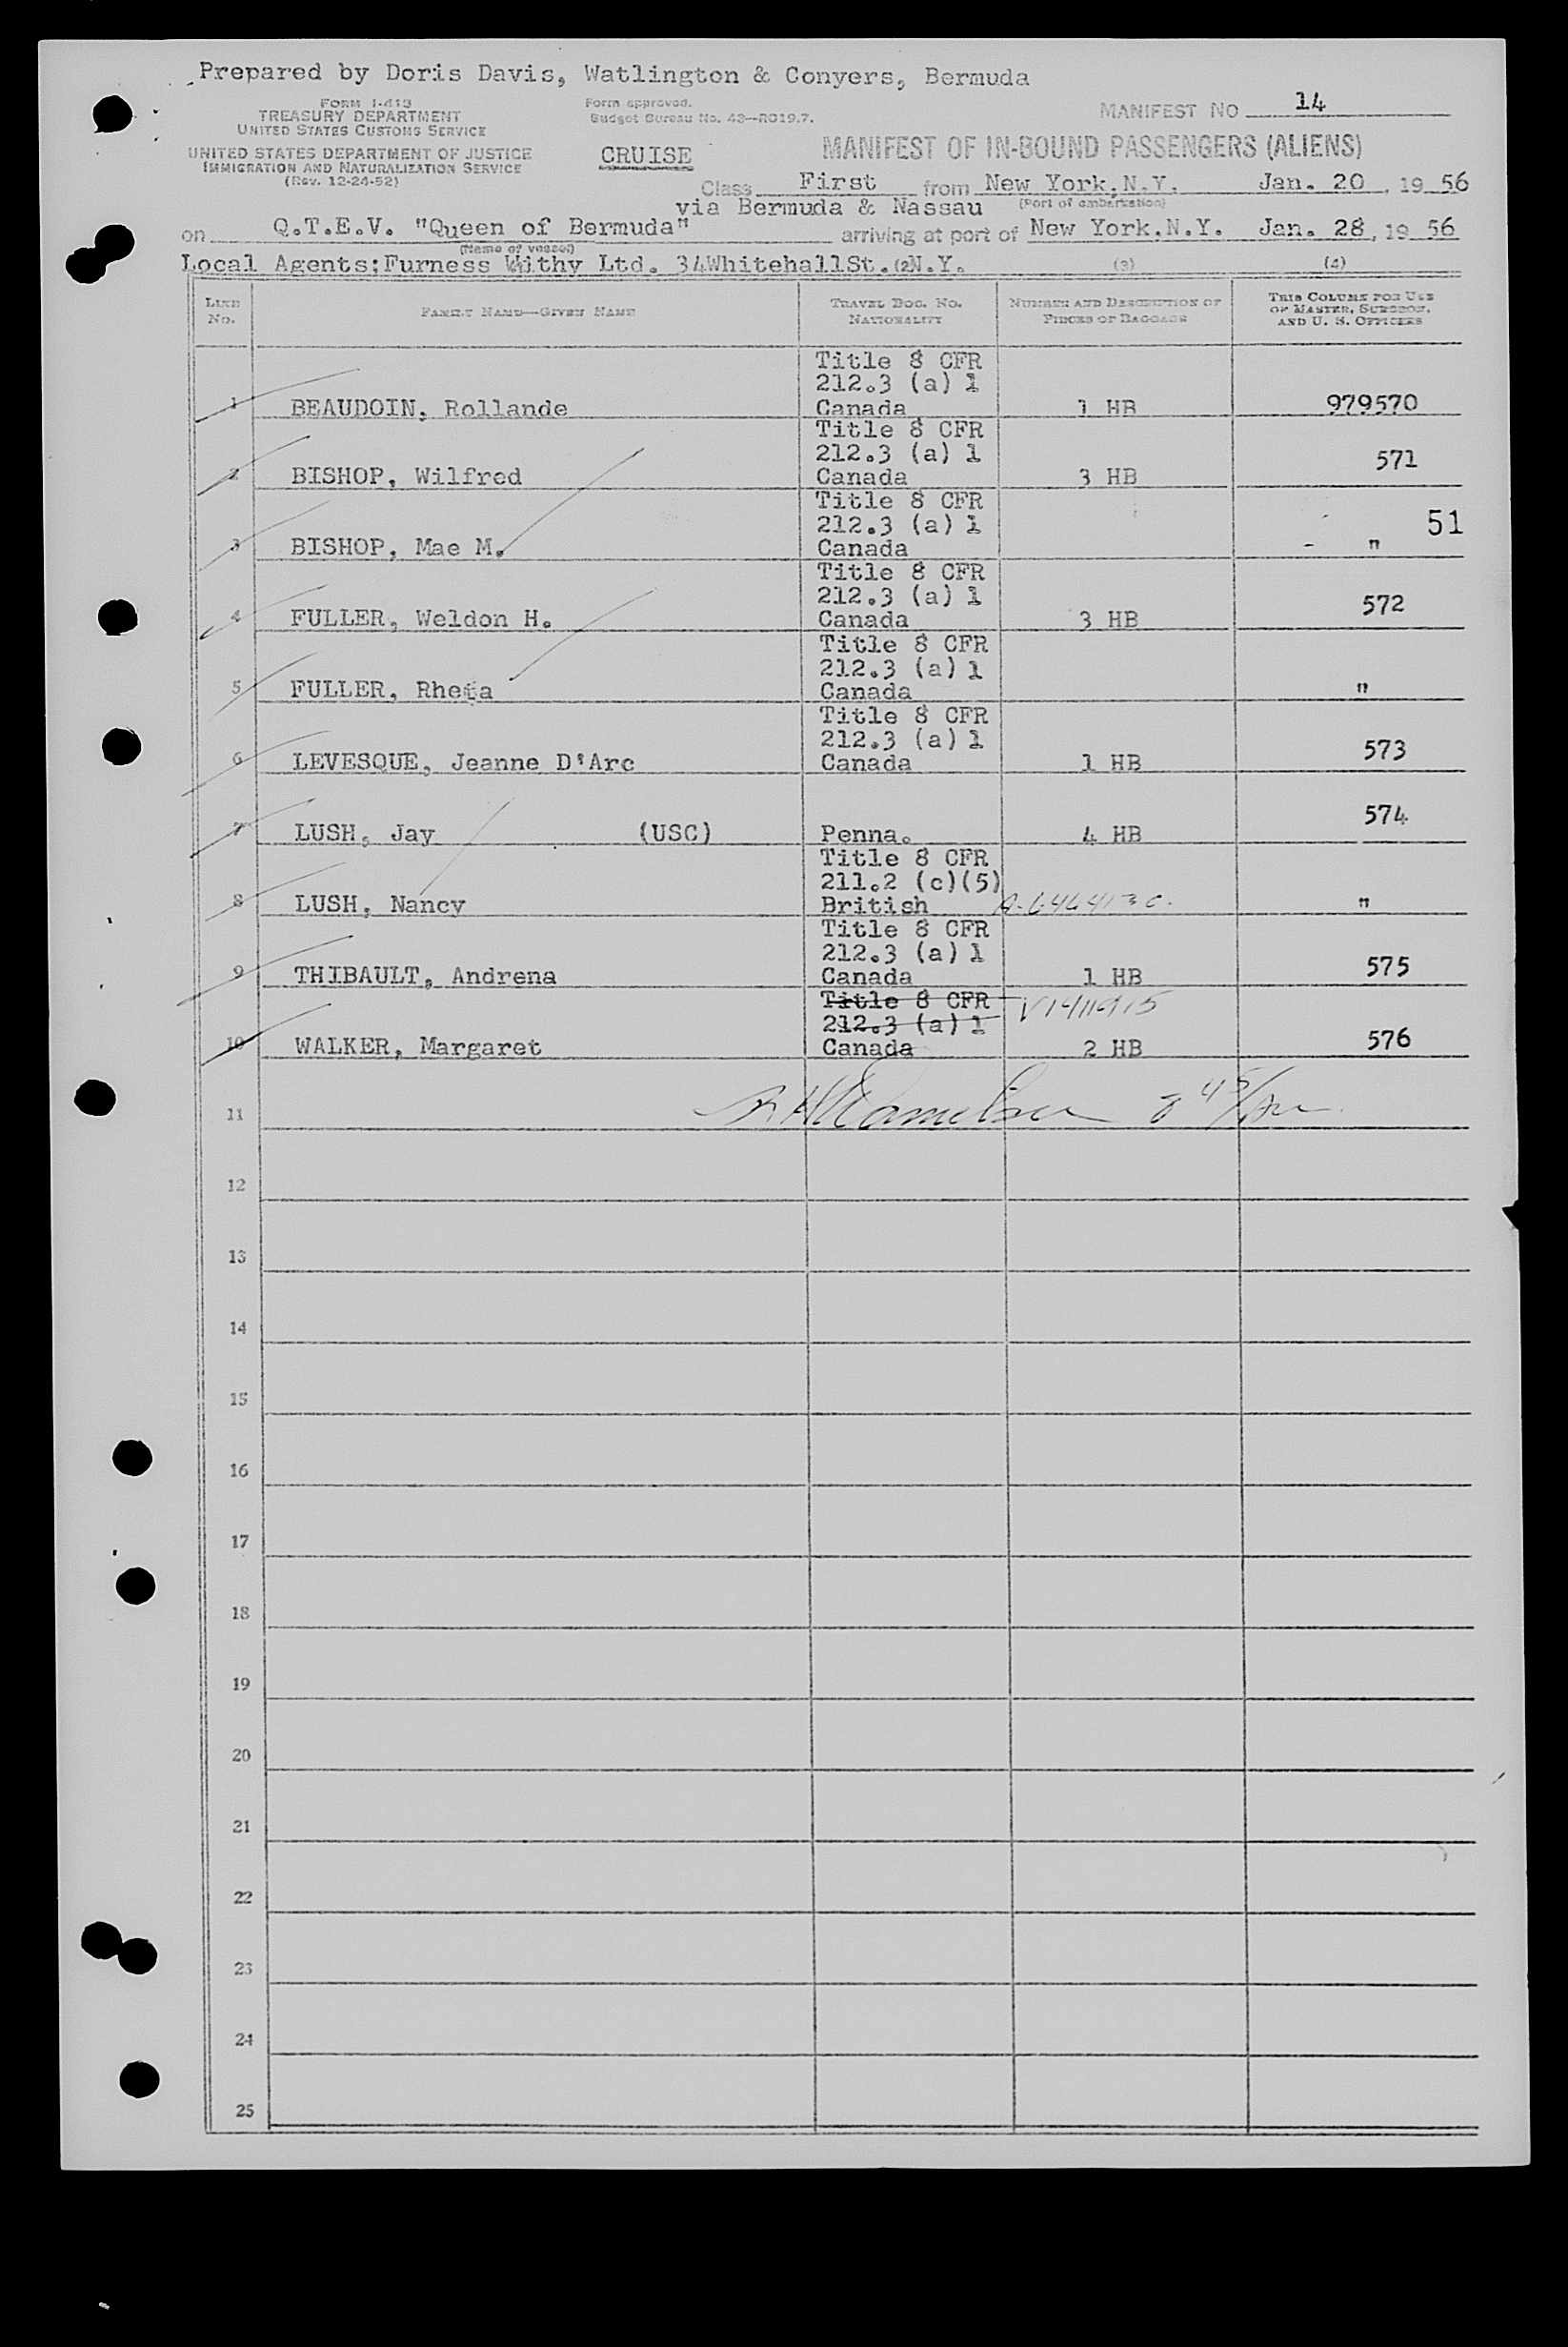 Prepared by Doris Davis, Watlington & Conyers, Bermuda
FORM I-418
TREASURY DEPARTMENT
UNITED STATES CUSTOMS SERVICE
UNITED STATES DEPARTMENT OF JUSTICE
IMMIGRATION AND NATURALIZATION SERVICE
(Rev. 12-24-52)
Form approved.
Budget Bureau No. 43—RO19.7.
CRUISE
MANIFEST NO 14
MANIFEST OF IN-BOUND PASSENGERS (ALIENS)
Class First from New York, N.Y. Jan. 20, 19 56
via Bermuda & Nassau (Port of embarkation)
on Q.T.E.V. "Queen of Bermuda" arriving at port of New York, N.Y. Jan. 28, 19 56
(Name of vessel)
Local Agents; Furness Withy Ltd. 34 Whitehall St. (2) N.Y. (3) (4)
LINE NO.
FAMILY NAME—GIVEN NAME
TRAVEL DOC. NO. NATIONALITY
NUMBER AND DESCRIPTION OF PIECES OF BAGGAGE
THIS COLUMN FOR USE OF MASTER, SURGEON, AND U. S. OFFICERS
Title 8 CFR
212.3 (a) 1
1 BEAUDOIN, Rollande Canada 1 HB 979570
Title 8 CFR
212.3 (a) 1
2 BISHOP, Wilfred Canada 3 HB 571
Title 8 CFR
212.3 (a) 1 51
3 BISHOP, Mae M. Canada - "
Title 8 CFR
212.3 (a) 1
4 FULLER, Weldon H. Canada 3 HB 572
Title 8 CFR
212.3 (a) 1
5 FULLER, Rheta Canada "
Title 8 CFR
212.3 (a) 1
6 LEVESQUE, Jeanne D'Arc Canada 1 HB 573
7 LUSH, Jay (USC) Penna. 4 HB 574
Title 8 CFR
211.2 (c)(5)
8 LUSH, Nancy British "
Title 8 CFR
212.3 (a) 1
9 THIBAULT, Andrena Canada 1 HB 575
Title 8 CFR
212.3 (a) 1
10 WALKER, Margaret Canada 2 HB 576
11
12
13
14
15
16
17
18
19
20
21
22
23
24
25